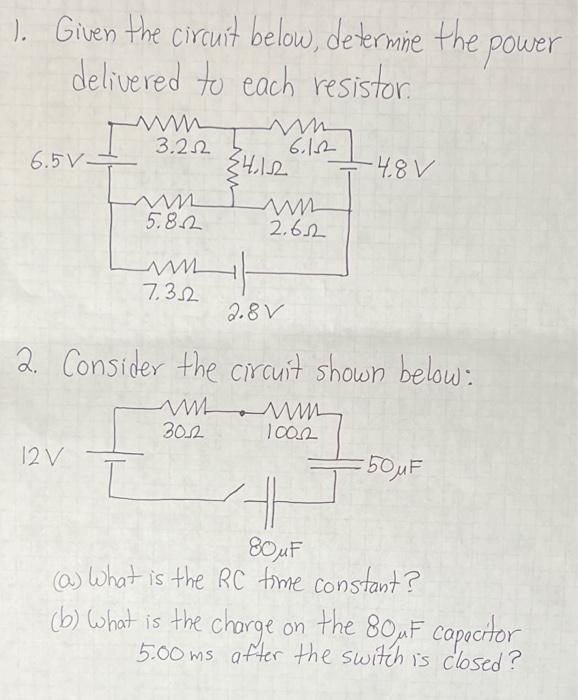 1. Given the circuit below, determine the power
delivered to each resistor.
3.2Ω
6.1Ω
6.5V
4.1Ω
4.8V
5.8Ω
2.6Ω
7.3Ω
2.8V
2. Consider the circuit shown below:
30Ω
100Ω
12V
50μF
80μF
(a) What is the RC time constant?
(b) What is the charge on the 80μF capacitor
5.00 ms after the switch is closed?